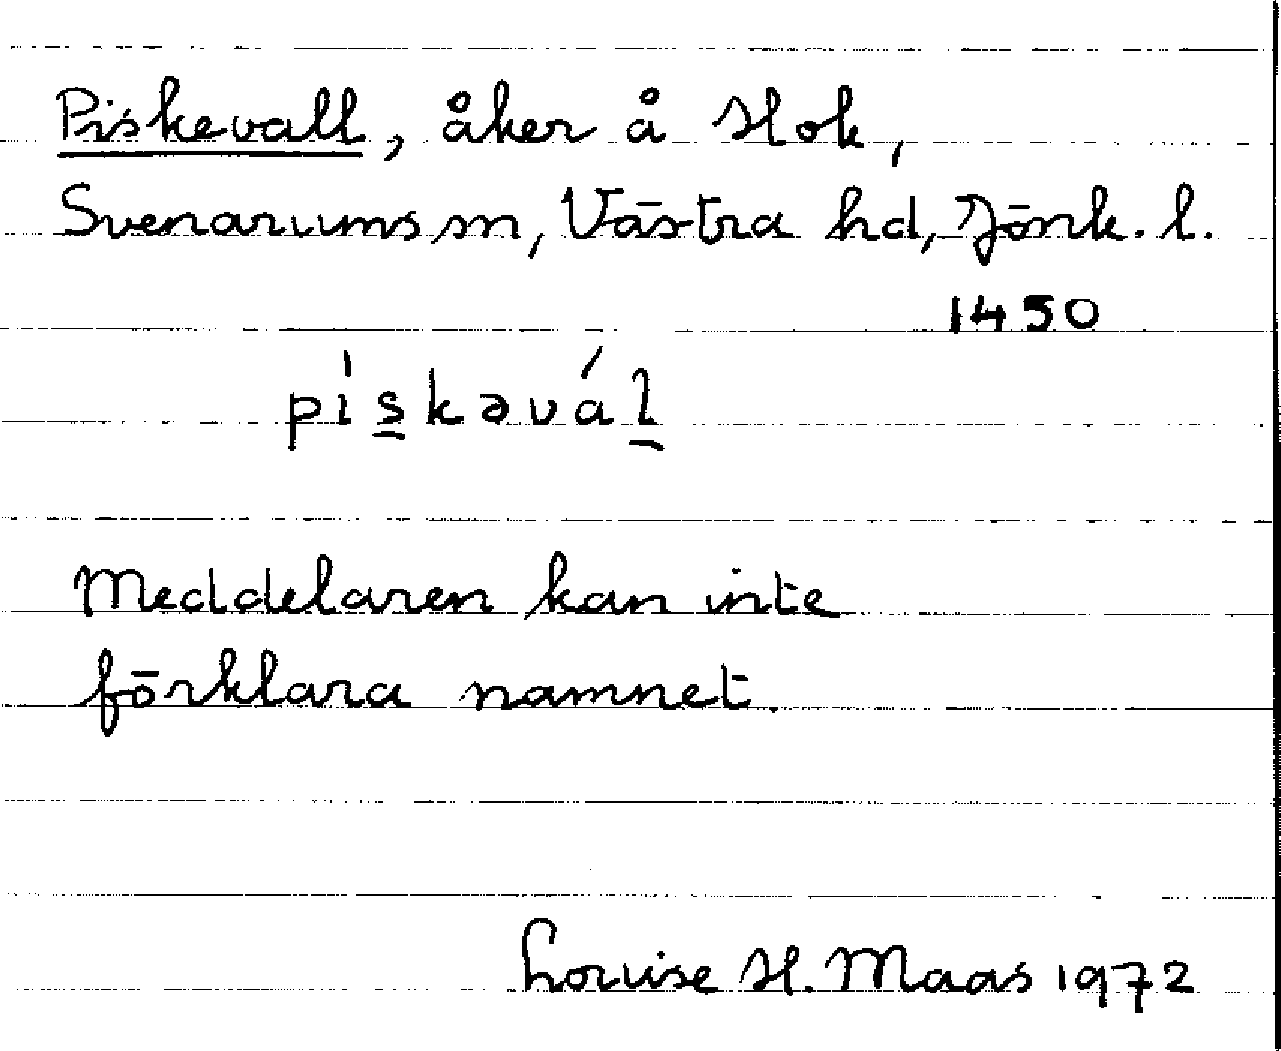 Piskevall, åker å Hok,
Svenarums sn, Västra hd, Jönk. l.
1450
pìs̲kəvál̲
Meddelaren kan inte
förklara namnet.
Louise H. Maas 1972